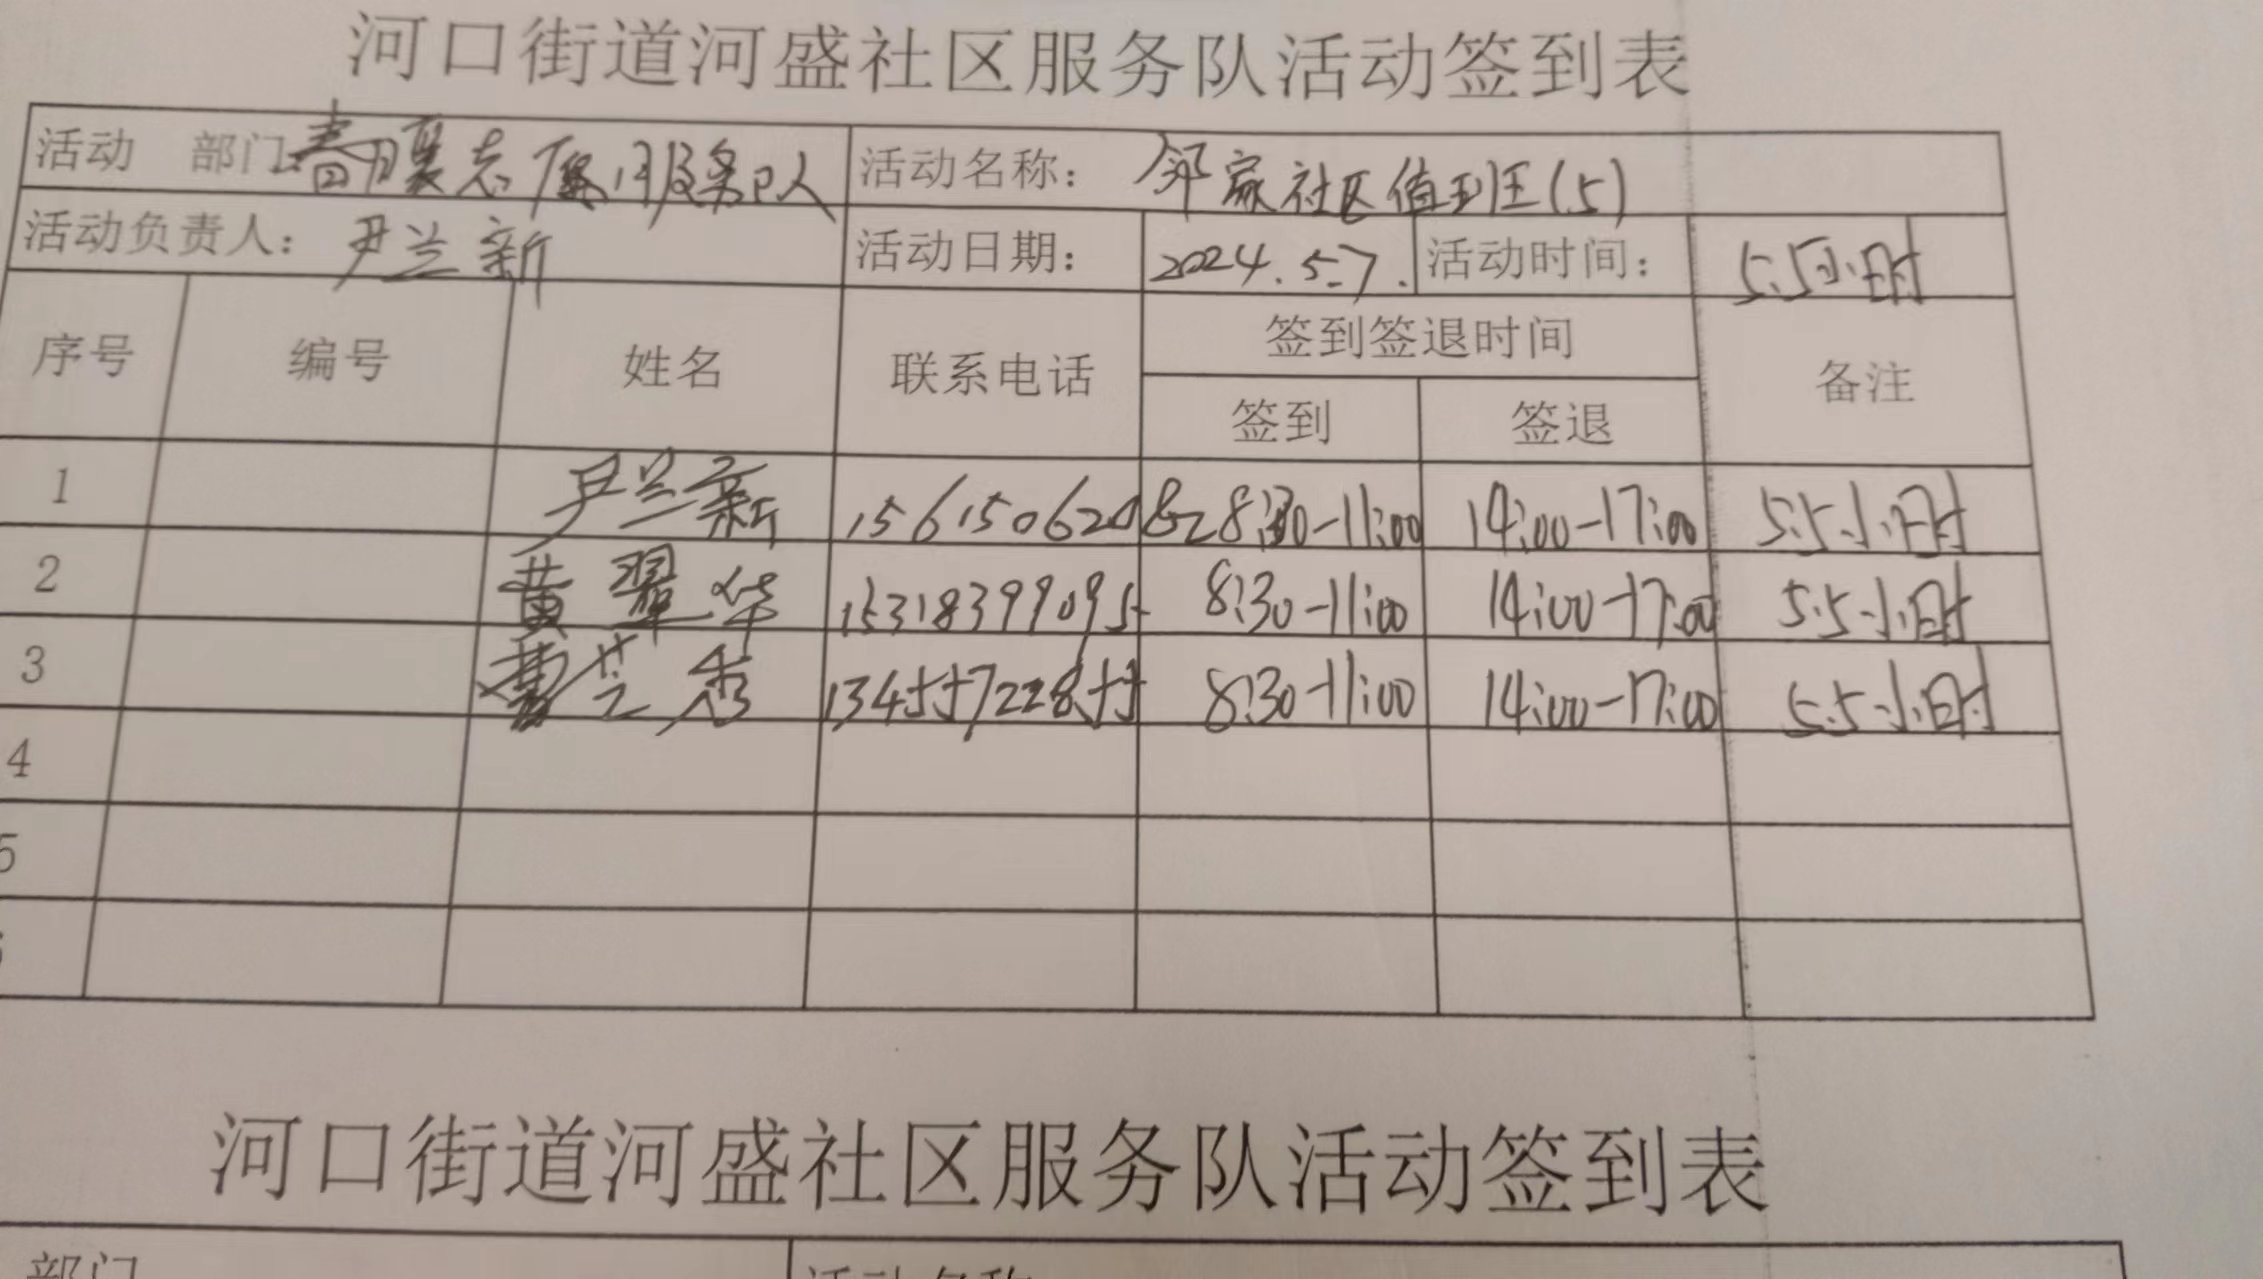 河口街道河盛社区服务队活动签到表
活动 部门 春暖夏志愿服务队 活动名称： 邻家社区值班(5)
活动负责人： 尹兰新 活动日期： 2024.5.7. 活动时间： 5.5小时
序号 编号 姓名 联系电话 签到签退时间 备注
签到 签退
1 尹兰新 15615062082 8:30-11:00 14:00-17:00 5.5小时
2 黄翠华 15318399095 8:30-11:00 14:00-17:00 5.5小时
3 曹芝秀 13455722855 8:30-11:00 14:00-17:00 5.5小时
4
5
河口街道河盛社区服务队活动签到表
部门 活动名称